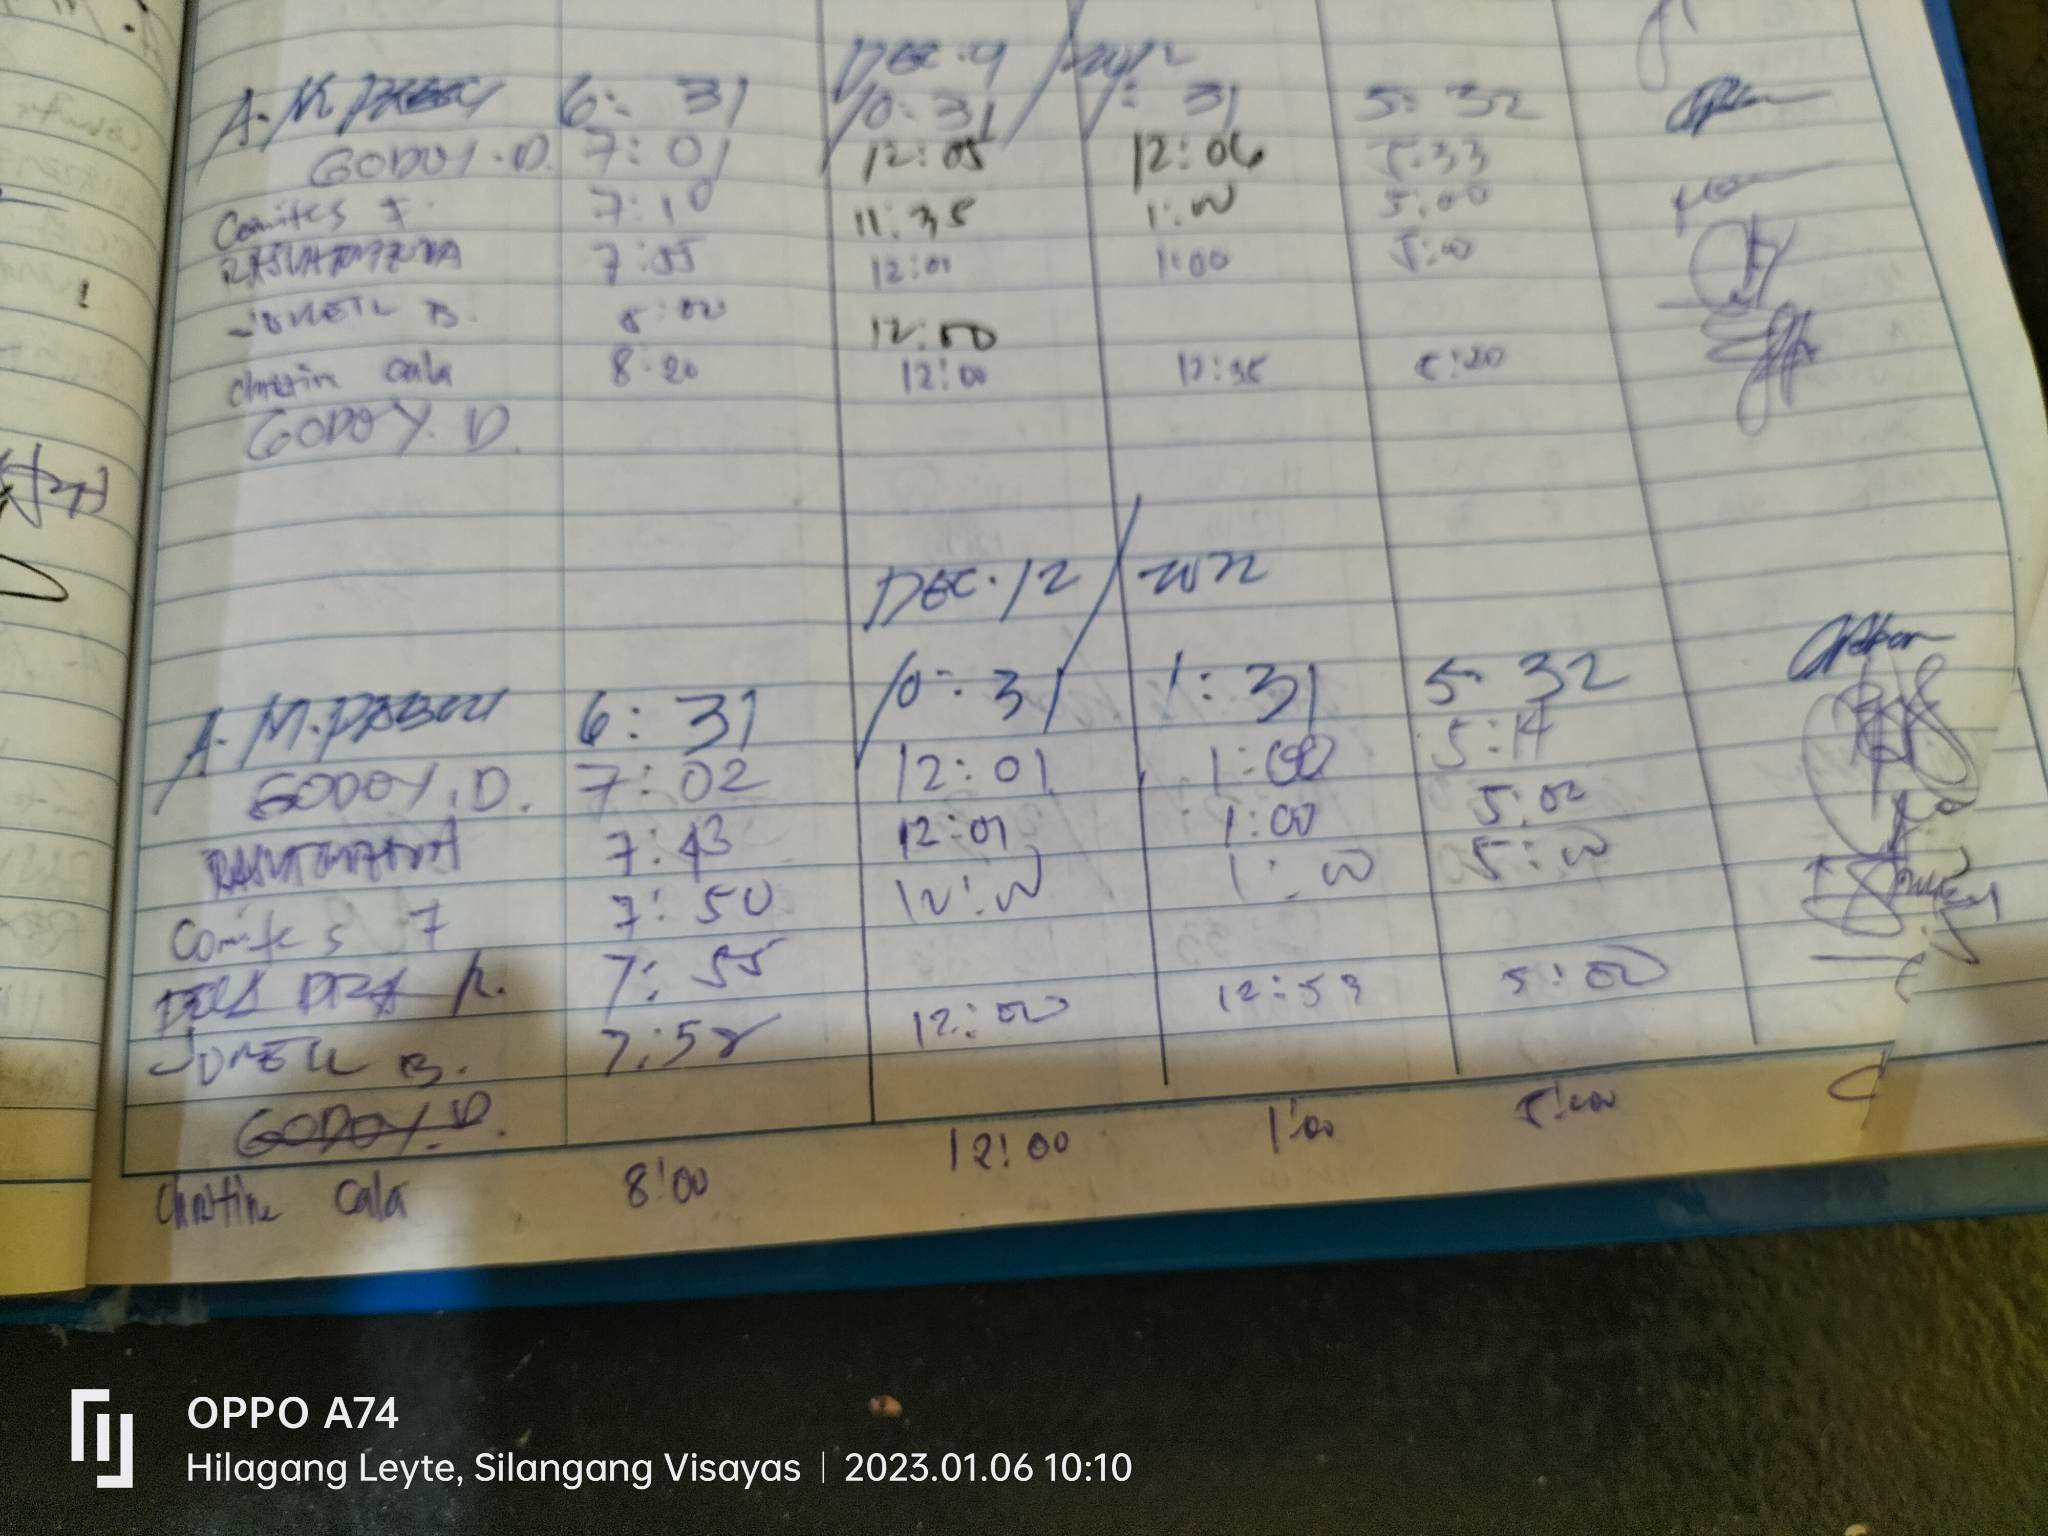 DEC. 9 / 2022
A. M. 6: 31 10: 31 1: 31 5: 32
GODOY. D. 7:01 12:05 12:06 5:33
Comites F. 7:10 11:35 1:00 5:00
7:55 12:01 1:00 5:00
JOMEIL B. 8:00 12:00
Christine Cala 8:20 12:00 12:35 5:20
GODOY. D.
DEC. 12 / 2022
A. M. 6: 31 10: 31 1: 31 5: 32
GODOY. D. 7:02 12:01 1:00 5:14
7:43 12:01 1:00 5:02
Comites F 7:50 12:00 1:00 5:00
7:55
JOMEIL B. 7:58 12:00 12:59 5:00
GODOY. D.
Christine Cala 8:00 12:00 1:00 5:00
OPPO A74
Hilagang Leyte, Silangang Visayas | 2023.01.06 10:10